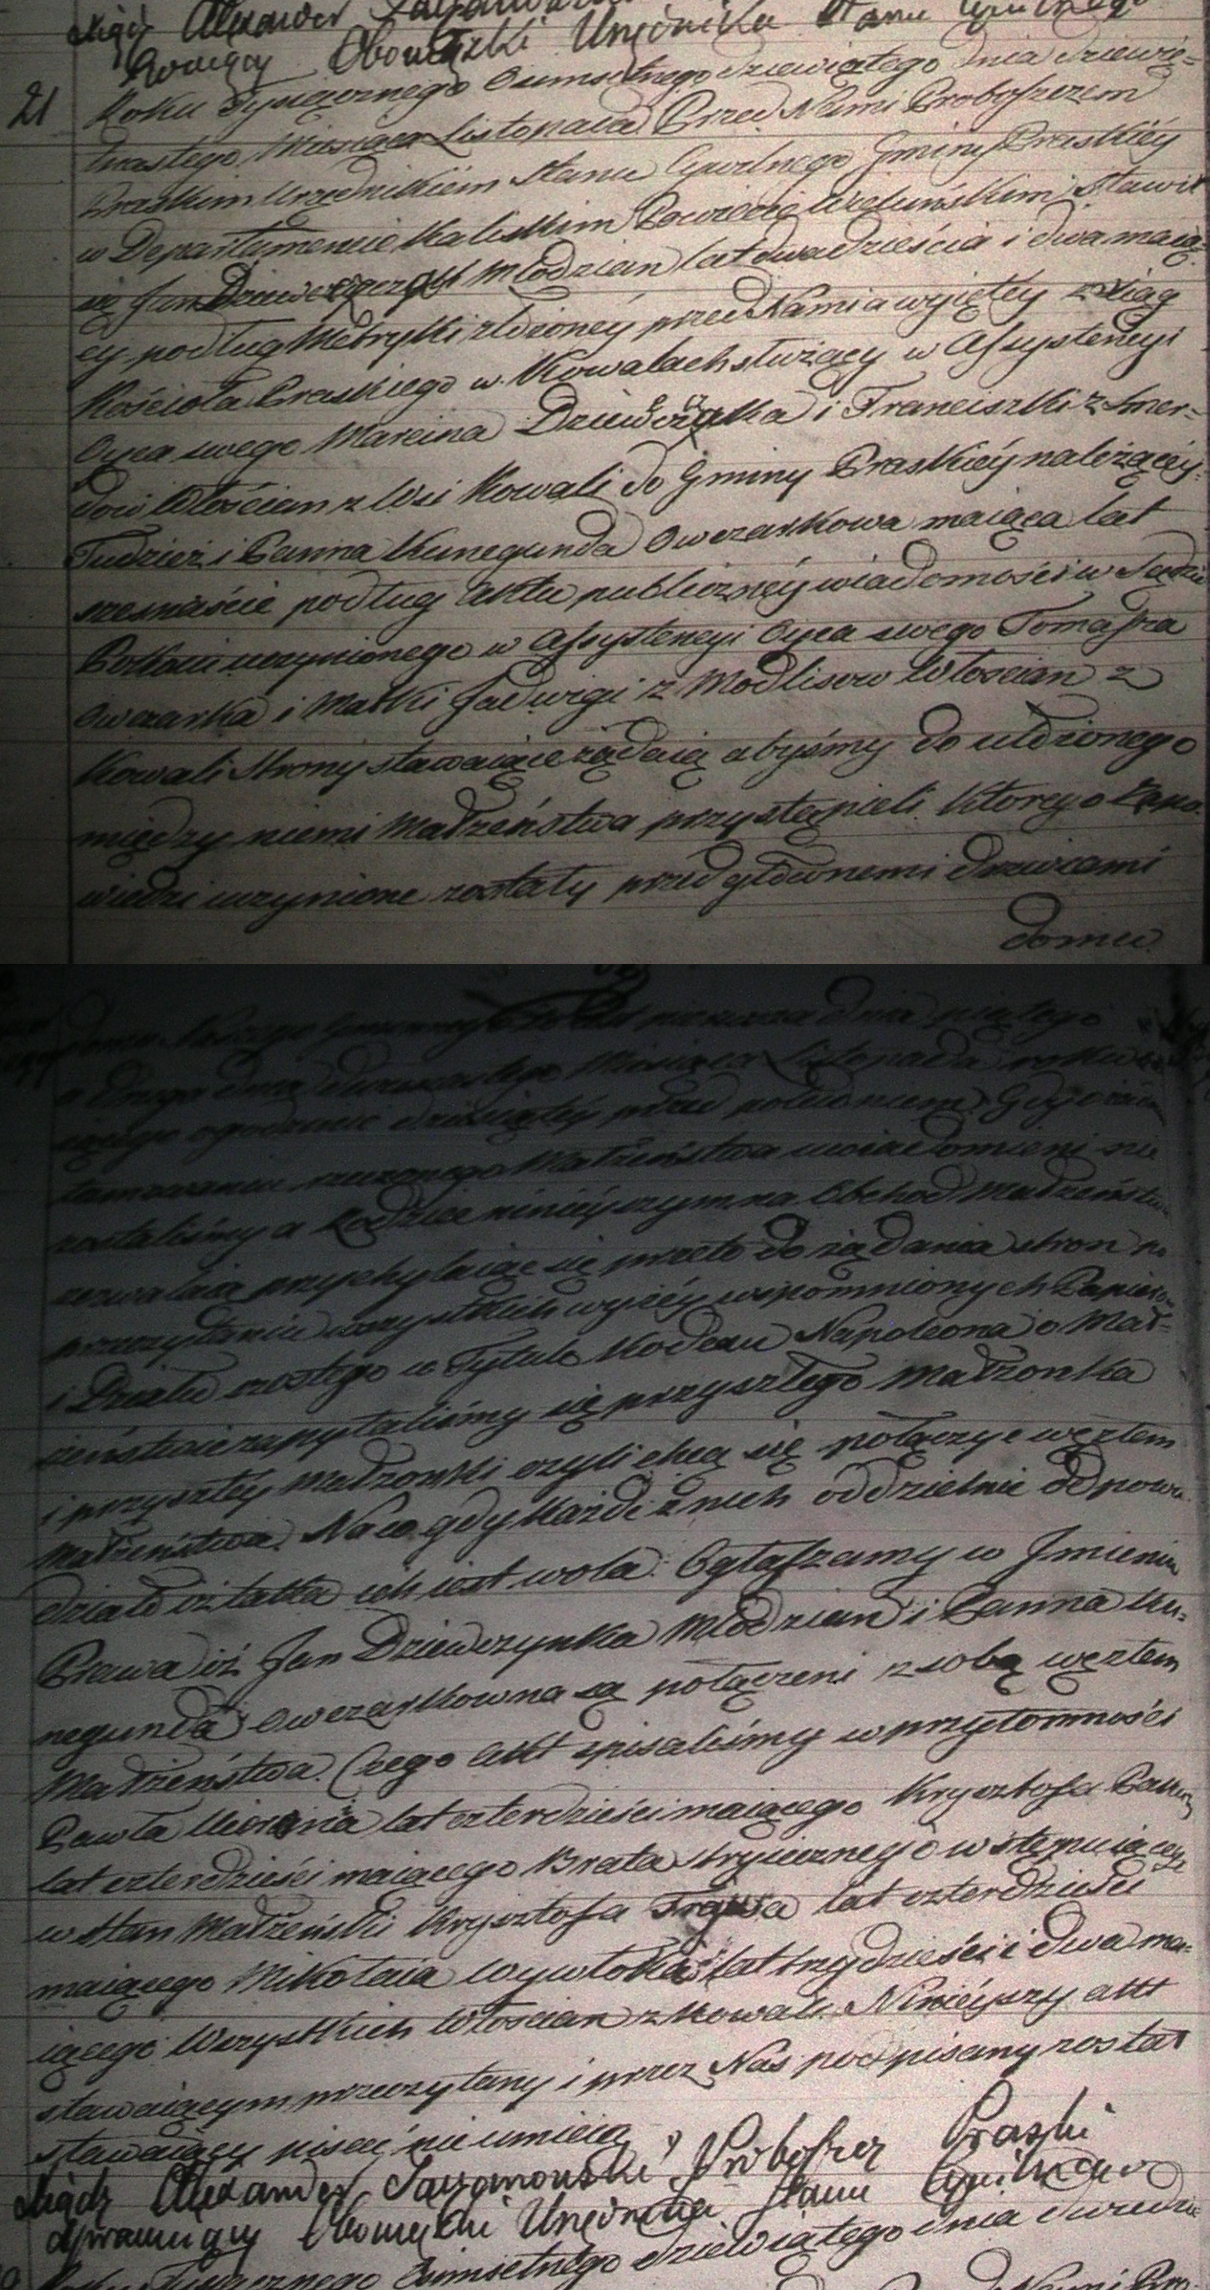 Xiądz Alexander
Obowiązki Urzędnika Stanu Cywilnego
21
Roku Tysiącznego Osimsetnego dziewiątego dnia dziewię-
tnastego Miesiąca Listopada Przed Nami Proboszczem
Praskim Urzędnikiem Stanu Cywilnego Gminy Praskiéy
w Departamencie Kaliskim Powiecie Wieluńskim Stawił
się Jan Młodzian lat dwadzieścia i dwa maią-
cy podług Metryki złożoney przed Nami a wyiętey z xiąg
Kościoła Praskiego w Kowalach służący w Assystencyi
Oyca swego Marcina i Franciszki z Smer-
dow Włościan z Wsi Kowali do Gminy Praskiéy należącéy.
Tudzież i Panna Kunegunda Owczarkowa maiąca lat
szesnaście podług aktu publicznéy wiadomości w Sądzie
Pokoiu uczynionego w Assystencyi Oyca swego Tomasza
Owczarka i Matki Jadwigi z Modlisow Włoscian z
Kowali Strony stawaiące żądaią abyśmy do ułożonego
między niemi Małżeństwa przystąpili. Ktorego Zapo-
wiedzi uczynione zostały przed głównemi drzwiami
domu
domu Naszego Gminnego to iest pierwsza dnia piątego
a druga dnia dwunastego Miesiąca Listopada roku
o godzinie dziesiątey przed południem. Gdy o
tamowaniu rzeczonego Małżeństwa uwiadomieni nie
zostaliśmy a Rodzice ninieyszym na Obchod Małżeństwa
zezwalaią przychylaiąc się przeto do żądania stron po
przeczytaniu wszystkich wyżéy wspomnionych Papierow
i Działu szostego w Tytule Kodexu Napoleona o Mał-
żeństwie zapytaliśmy się przyszłego Małżonka
i przyszłey Małżonki czyli chcą się połączyć węzłem
Małżeństwa. Na co gdy każde z nich oddzielnie odpowie-
działo iż taka ich iest wola. Ogłaszamy w Jmieniu
Prawa iż Jan Dziewczynka Młodzian i Panna Ku-
negunda Owczarkowna są połączeni z sobą węzłem
Małżeństwa. Czego Akt spisaliśmy w przytomności
Pawła lat czterdzieści maiącego Krysztofa
lat czterdzieści maiącego Brata stryiecznego wstępuiących
w Stan Małżeński Krysztofa lat czterdzieści
maiącego Mikołaia lat trzydzieści i dwa ma-
iącego Wszystkich Włoscian z Kowali. Ninieyszy akt
stawaiącym przeczytany i przez Nas podpisany został
stawaiący pisać nie umieią
Xiądz Alexander Proboszcz Praszki
sprawuiący Obowiązki Urzędnika Stanu Cywilnego
Osimsetnego dziewiątego dnia